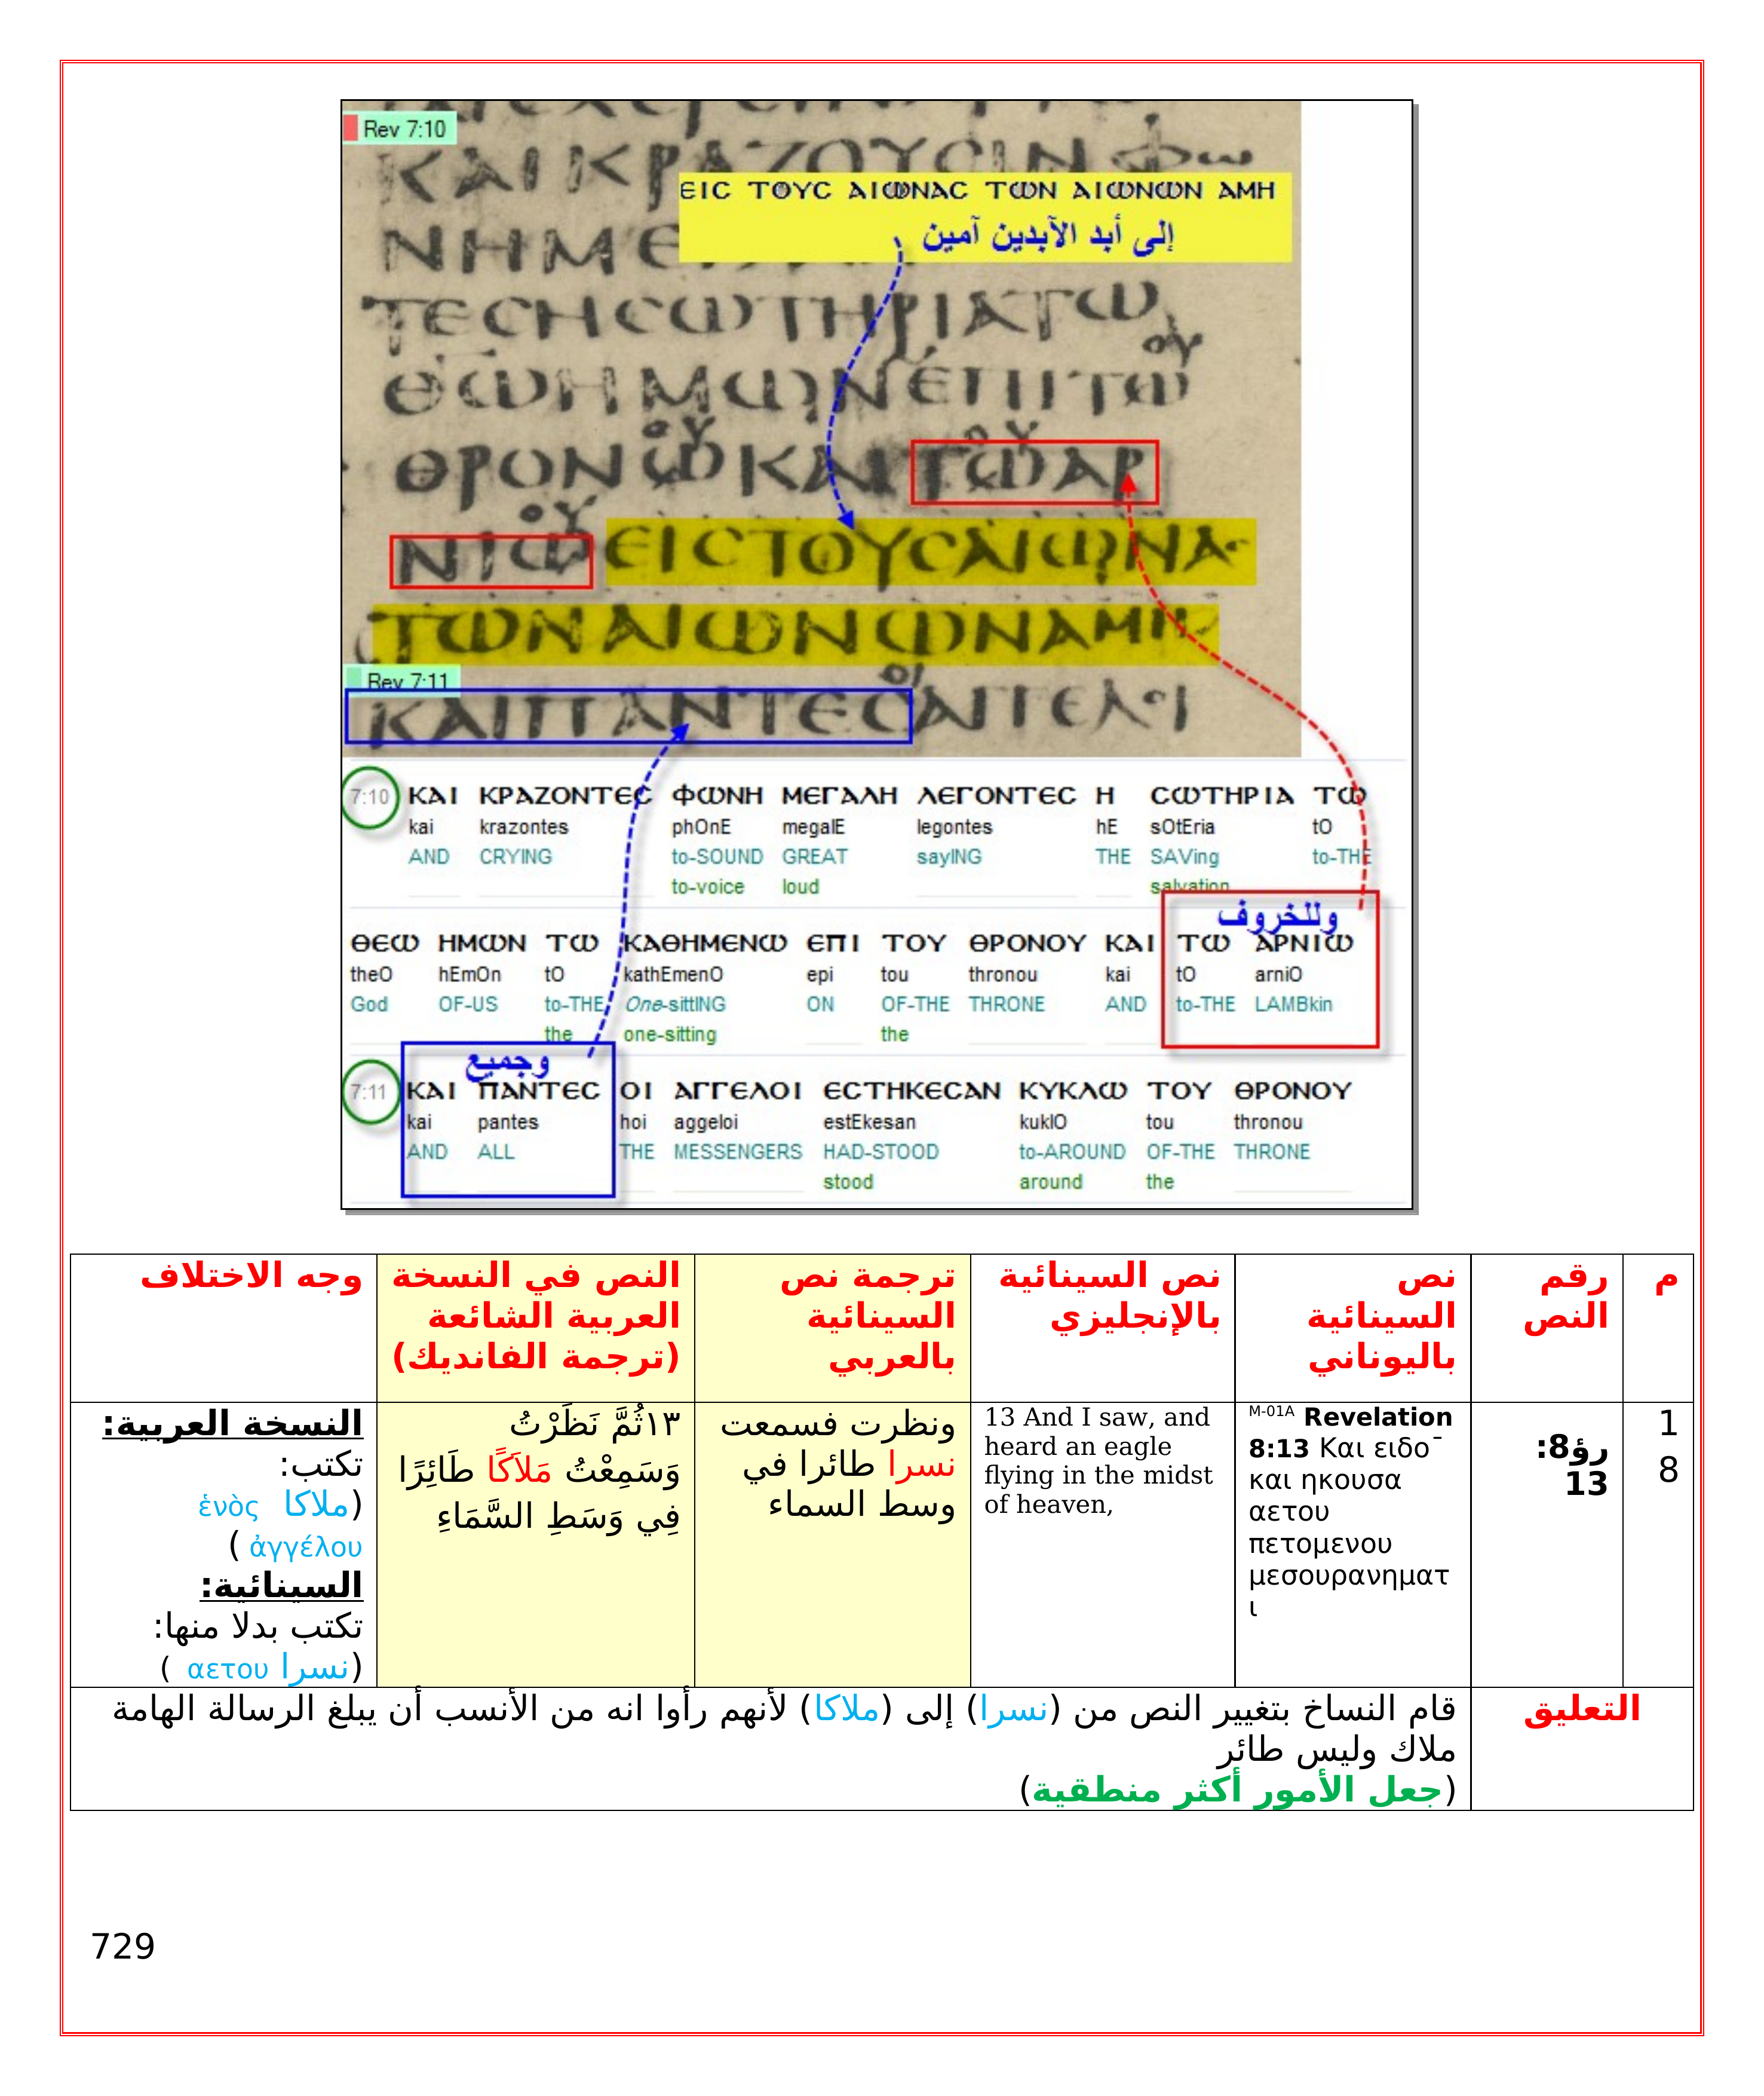 Rev 7:10
ΚΑΙΚΡΑΖΟΥСΙΝΦω
ΕΙС ΤΟΥС ΑΙΩΝΑС ΤΩΝ ΑΙΩΝΩΝ ΑΜΗ
إلى أبد الآبدين آمين
ΝΗΜΕ
ΤΕСΗСΩΤΗΡΙΑΤΩ
ΘΩΗΜΩΝΕΠΙΤΩ
ΘΡΟΝΩΚΑΙΤΩΑΡ
ΝΙΩΕΙСΤΟΥСΑΙΩΝΑС
ΤΩΝΑΙΩΝΩΝΑΜΗ
Rev 7:11
ΚΑΙΠΑΝΤΕСΑΓΓΕΛΟΙ
7:10 ΚΑΙ ΚΡΑΖΟΝΤΕС ΦΩΝΗ ΜΕΓΑΛΗ ΛΕΓΟΝΤΕС Η СΩΤΗΡΙΑ ΤΩ
kai krazontes phOnE megalE legontes hE sOtEria tO
AND CRYING to-SOUND GREAT sayING THE SAVing to-THE
to-voice loud salvation
وللخروف
ΘΕΩ ΗΜΩΝ ΤΩ ΚΑΘΗΜΕΝΩ ΕΠΙ ΤΟΥ ΘΡΟΝΟΥ ΚΑΙ ΤΩ ΑΡΝΙΩ
theO hEmOn tO kathEmenO epi tou thronou kai tO arniO
God OF-US to-THE One-sittING ON OF-THE THRONE AND to-THE LAMBkin
the one-sitting the
وجميع
7:11 ΚΑΙ ΠΑΝΤΕС ΟΙ ΑΓΓΕΛΟΙ ΕСΤΗΚΕСΑΝ ΚΥΚΛΩ ΤΟΥ ΘΡΟΝΟΥ
kai pantes hoi aggeloi estEkesan kuklO tou thronou
AND ALL THE MESSENGERS HAD-STOOD to-AROUND OF-THE THRONE
stood around the
م
رقم
النص
نص
السينائية
باليوناني
نص السينائية
بالإنجليزي
ترجمة نص
السينائية
بالعربي
النص في النسخة
العربية الشائعة
(ترجمة الفانديك)
وجه الاختلاف
1
8
رؤ8:
13
M-01A Revelation
8:13 Και ειδο¯
και ηκουσα
αετου
πετομενου
μεσουρανηματ
ι
13 And I saw, and
heard an eagle
flying in the midst
of heaven,
ونظرت فسمعت
نسرا طائرا في
وسط السماء
١٣ثُمَّ نَظَرْتُ
وَسَمِعْتُ مَلاَكًا طَائِرًا
فِي وَسَطِ السَّمَاءِ
النسخة العربية:
تكتب:
(ملاكا ἑνὸς
ἀγγέλου )
السينائية:
تكتب بدلا منها:
(نسرا αετου )
التعليق
قام النساخ بتغيير النص من (نسرا) إلى (ملاكا) لأنهم رأوا انه من الأنسب أن يبلغ الرسالة الهامة
ملاك وليس طائر
(جعل الأمور أكثر منطقية)
729